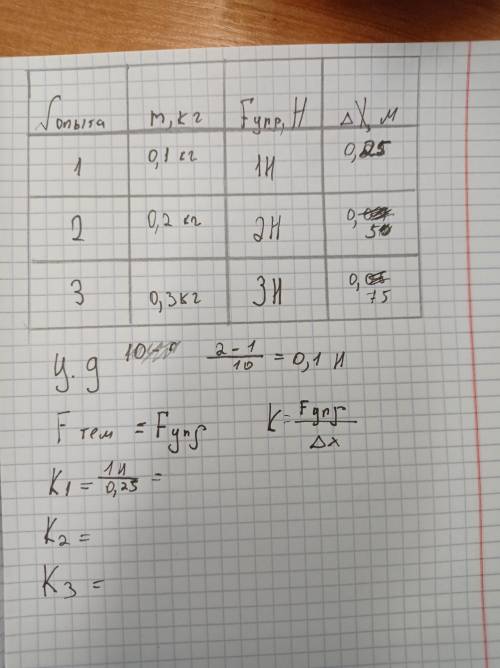 № опыта m, кг Fупр, Н ΔX, м
1 0,1 кг 1Н 0,25
2 0,2 кг 2Н 0,50
3 0,3кг 3Н 0,75
ц.д 10 2-1/10 = 0,1 Н
Fтем = Fупр K=Fупр/Δx
K1 = 1Н/0,25 =
K2 =
K3 =